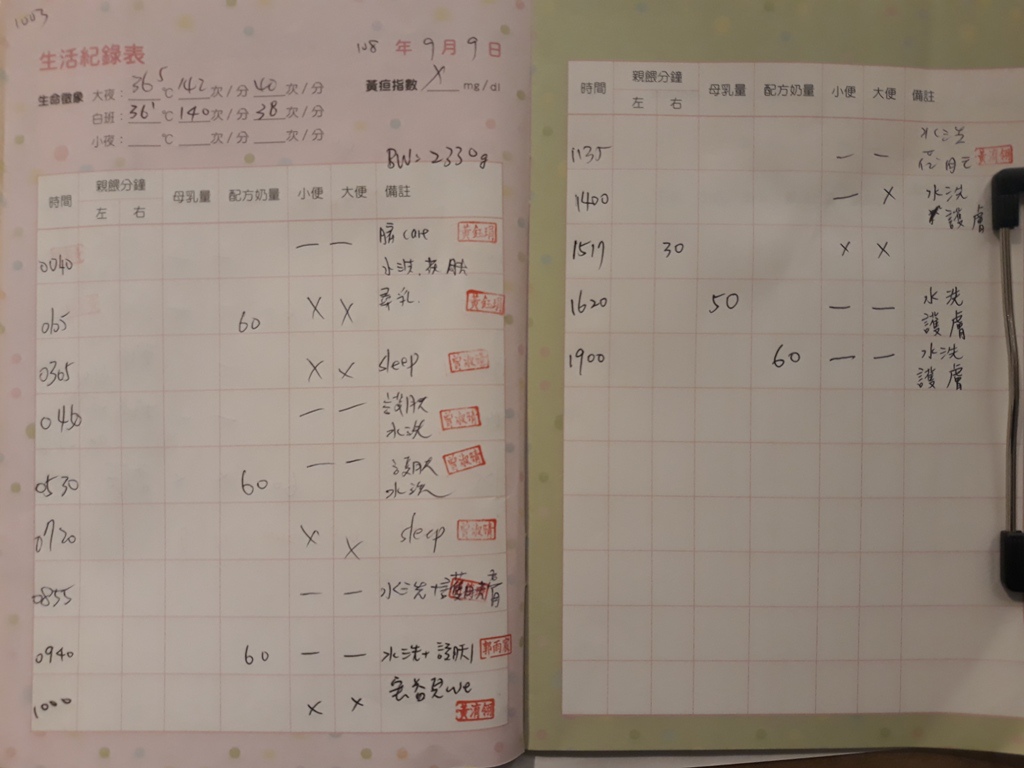 1003
生活紀錄表
108 年 9 月 9 日
生命徵象 大夜：36.5 ℃ 142 次/分 40 次/分
黃疸指數 X mg/dl
白班：36.1 ℃ 140 次/分 38 次/分
小夜： ℃ 次/分 次/分
BW: 2330g
時間 親餵分鐘 左 右 母乳量 配方奶量 小便 大便 備註
0040 — — care
水洗 護膚
60 X X
0305 X X sleep
— — 護膚
水洗
0530 60 — — 護膚
水洗
0720 X X sleep
0855 — — 水洗+護膚
0940 60 — — 水洗+護膚
1000 X X
時間 親餵分鐘 左 右 母乳量 配方奶量 小便 大便 備註
1135 — — 水洗
1400 — X 水洗
護膚
1517 30 X X
1620 50 — — 水洗
護膚
1900 60 — — 水洗
護膚